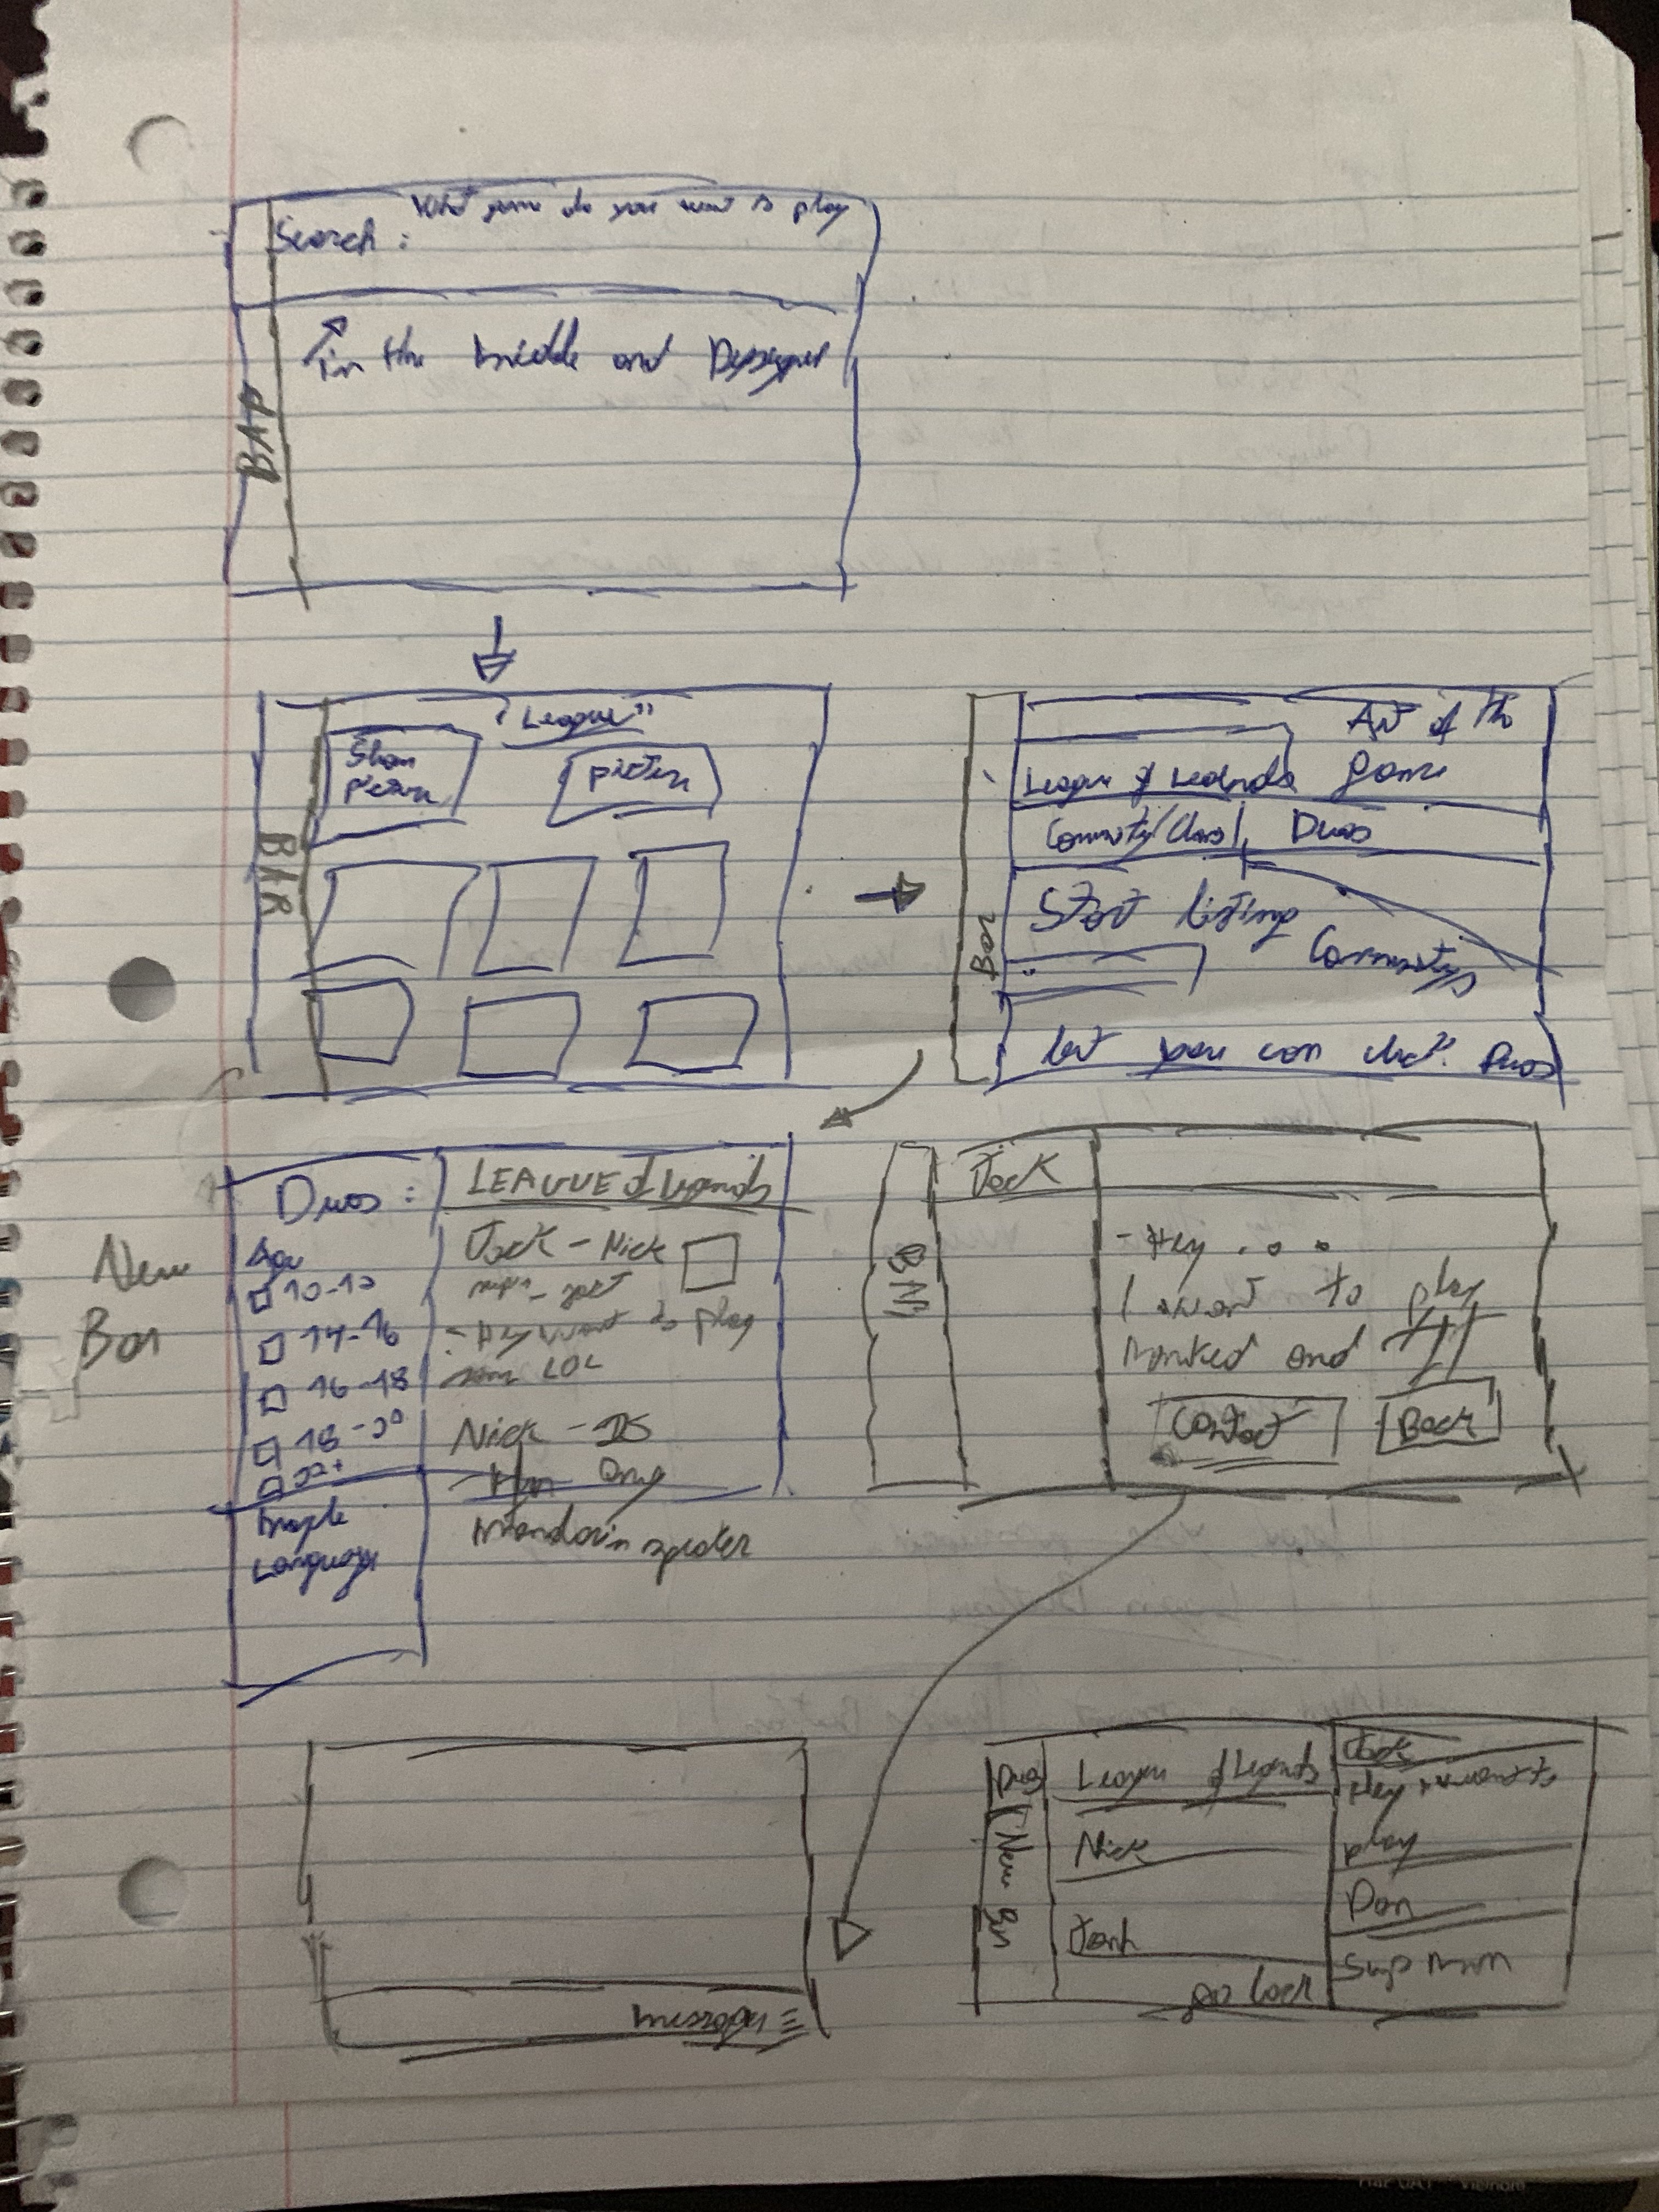 What game do you want to play
Search :
in the middle and
BAR
"League"
Show
picture
picture
BAR
Art of the
Game
League of Leagnds
Community/Clans
Duos
Start listing
Communitys
but you can click Duos
Bar
New
Bar
Duos :
Age
14-16
16-18
18-20
22+
Language
LEAGUE of legends
Jack - Nick
- Hey want to play
some LOL
Nick - 25
Mandarin speaker
BAR
Jack
- Hey ...
I want to play
Ranked and
Contact
Back
messages
Duos
New Bar
League of Legends
Nick
go back
Jack
Hey I want to
play
Dan
Sup man